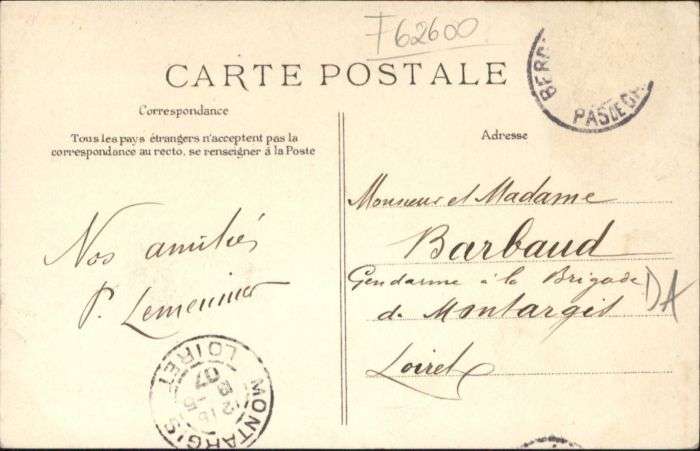 F62600
CARTE POSTALE
Correspondance
Tous les pays étrangers n'acceptent pas la
correspondance au recto, se renseigner à la Poste
Nos amitiés
P. Lemeunier
Adresse
Monsieur et Madame
Barbaud
Gendarme à la Brigade
de Montargis
Loiret
DA
PAS DE
MONTARGIS
LOIRET